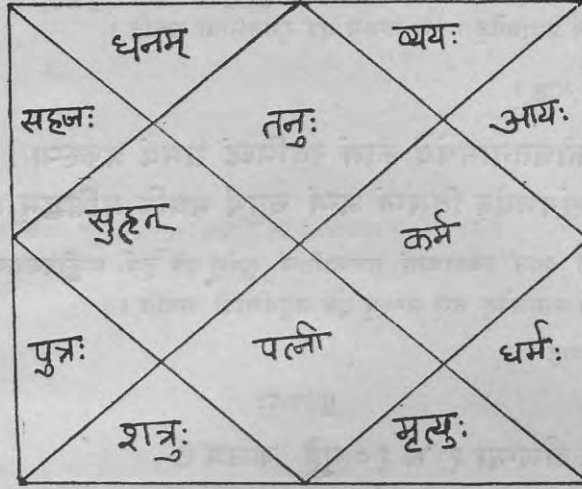 धनम् व्ययः
सहजः तनुः आयः
सुहृत् कर्म
पुत्रः पत्नी धर्मः
शत्रुः मृत्युः